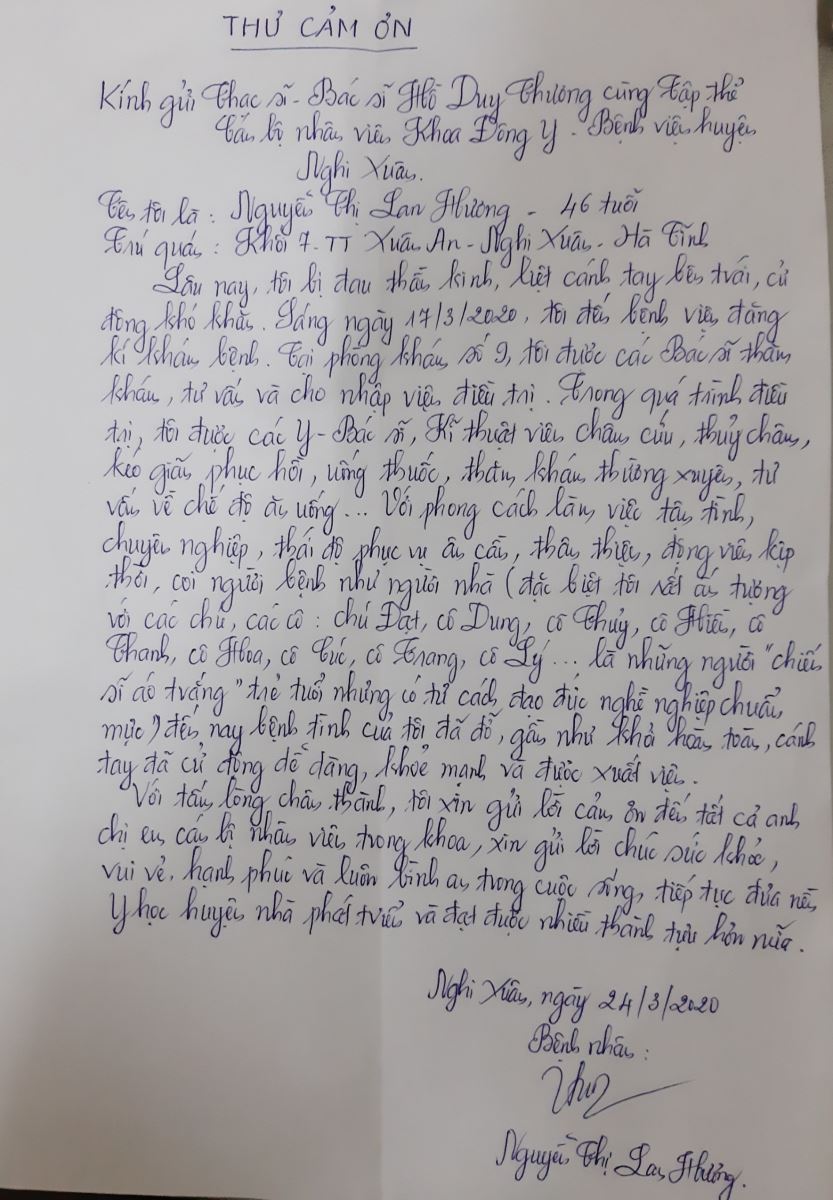 THƯ CẢM ƠN
Kính gửi Thạc sĩ - Bác sĩ Hồ Duy Thương cùng Tập thể
Cán bộ nhân viên Khoa Đông Y - Bệnh viện huyện
Nghi Xuân.
Tên tôi là : Nguyễn Thị Lan Hương - 46 tuổi
Trú quán : Khối 7 - TT Xuân An - Nghi Xuân - Hà Tĩnh
Lâu nay, tôi bị đau thần kinh, liệt cánh tay bên trái, cử
động khó khăn. Sáng ngày 17/3/2020, tôi đến bệnh viện đăng
kí khám bệnh. Tại phòng khám số 9, tôi được các Bác sĩ thăm
khám, tư vấn và cho nhập viện điều trị. Trong quá trình điều
trị, tôi được các Y - Bác sĩ, Kĩ thuật viên châm cứu, thuỷ châm,
kéo giãn phục hồi, uống thuốc, thăm khám thường xuyên, tư
vấn về chế độ ăn uống... Với phong cách làm việc tận tình,
chuyên nghiệp, thái độ phục vụ ân cần, thân thiện, động viên kịp
thời, coi người bệnh như người nhà (đặc biệt tôi rất ấn tượng
với các chú, các cô : chú Đạt, cô Dung, cô Thủy, cô Hiền, cô
Thanh, cô Hoa, cô Cúc, cô Trang, cô Lý ... là những người "chiến
sĩ áo trắng" trẻ tuổi nhưng có tư cách, đạo đức nghề nghiệp chuẩn
mực) đến nay bệnh tình của tôi đã đỡ, gần như khỏi hoàn toàn, cánh
tay đã cử động dễ dàng, khoẻ mạnh và được xuất viện.
Với tấm lòng chân thành, tôi xin gửi lời cảm ơn đến tất cả anh
chị em cán bộ nhân viên trong khoa, xin gửi lời chúc sức khỏe,
vui vẻ, hạnh phúc và luôn bình an trong cuộc sống, tiếp tục đưa nền
Y học huyện nhà phát triển và đạt được nhiều thành tựu hơn nữa.
Nghi Xuân, ngày 24/3/2020
Bệnh nhân :
Nguyễn Thị Lan Hương.